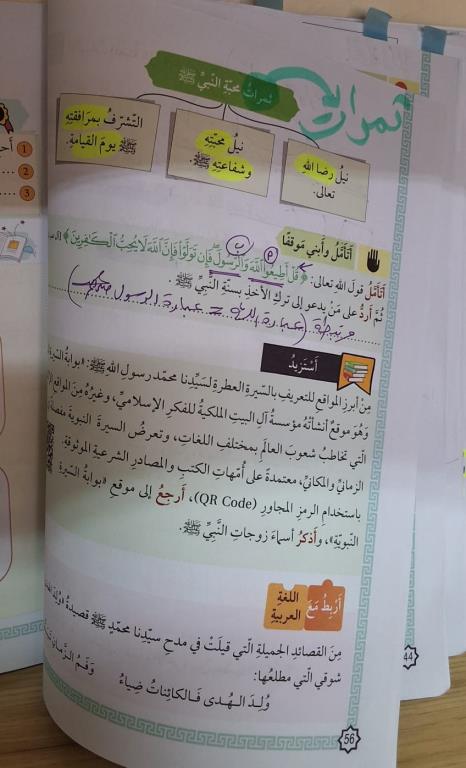 ثمرات
ثمراتُ محبّةِ النّبيِّ ﷺ
نيلُ رضا اللهِ
تعالى.
نيلُ محبّتِهِ
وشفاعتِهِ ﷺ.
التّشرّفُ بمرافقتِهِ
ﷺ يومَ القيامةِ.
أَتَأَمَّلُ وأَبْني مَوقفًا
أَتَأَمَّلُ قولَ اللهِ تعالى: ﴿قُلْ أَطِيعُوا اللَّهَ وَالرَّسُولَ فَإِن تَوَلَّوْا فَإِنَّ اللَّهَ لَا يُحِبُّ الْكَافِرِينَ﴾
ثُمَّ أَرُدُّ على مَنْ يدعو إلى تركِ الأخذِ بسنّةِ النّبيِّ ﷺ.
مرتبطة (عبادة الله = عبادة الرسول
أَسْتَزيدُ
مِنْ أبرزِ المواقعِ للتعريفِ بالسّيرةِ العطرةِ لسَيِّدِنا محمّد رسولِ اللهِ ﷺ: «بوابةُ
وَهُوَ موقعٌ أنشأتْهُ مؤسسةُ آلِ البيتِ الملكيةُ للفكرِ الإسلاميِّ، وغيرُهُ مِنَ المواقعِ
الّتي تخاطبُ شعوبَ العالَمِ بمختلفِ اللغاتِ، وتعرضُ السيرةَ النبويةَ
الزمانيِّ والمكانيِّ، معتمدةً على أُمّهاتِ الكتبِ والمصادرِ الشرعيةِ الموثوقةِ.
باستخدامِ الرمزِ المجاورِ (QR Code)، أَرجعُ إلى موقعِ «بوابةُ السّيرةِ
النّبويّةِ»، وأَذكرُ أسماءَ زوجاتِ النَّبيِّ ﷺ.
أَرْبِطُ مَعَ
اللغةِ
العربيةِ
مِنَ القصائدِ الجميلةِ الّتي قيلَتْ في مدحِ سيّدِنا محمّدٍ ﷺ قصيدةُ «وُلِدَ
شوقي الّتي مطلعُها:
وُلِـدَ الـهُـدى فَـالكائِناتُ ضِياءُ
وَفَـمُ الـزَّمانِ
56
44
1
2
3